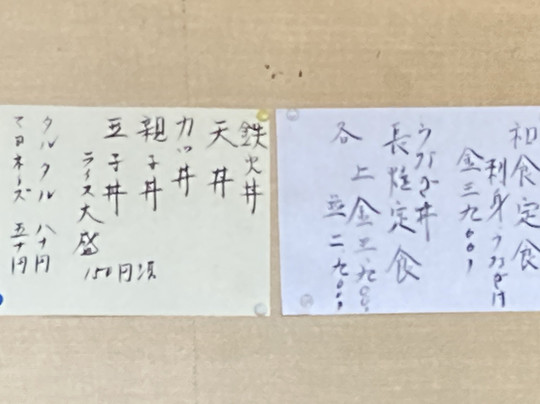 和食定食
刺身・うなぎ付
金三九〇〇、
うなぎ丼
長焼定食
各 上金三、九〇〇、
並二九〇〇、
鉄火丼
天丼
カツ丼
親子丼
玉子丼
ライス大盛
150円頂
タルタル 八十円
マヨネーズ 五十円